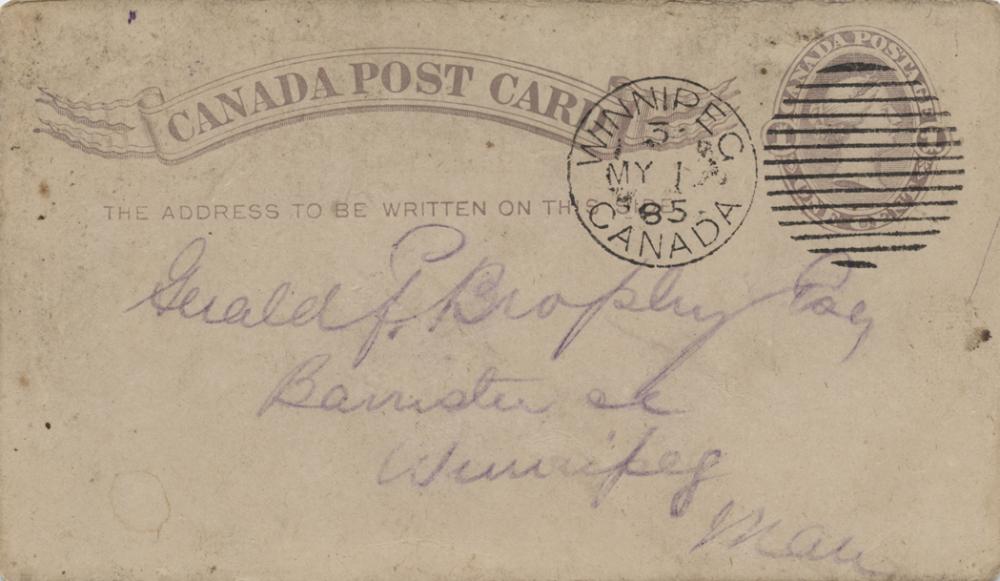 CANADA POST CARD
CANADA POSTAGE
ONE CENT
WINNIPEG
MY 1
85
CANADA
THE ADDRESS TO BE WRITTEN ON THIS SIDE
Gerald F. Brophy Esq
Barrister &c
Winnipeg
Man